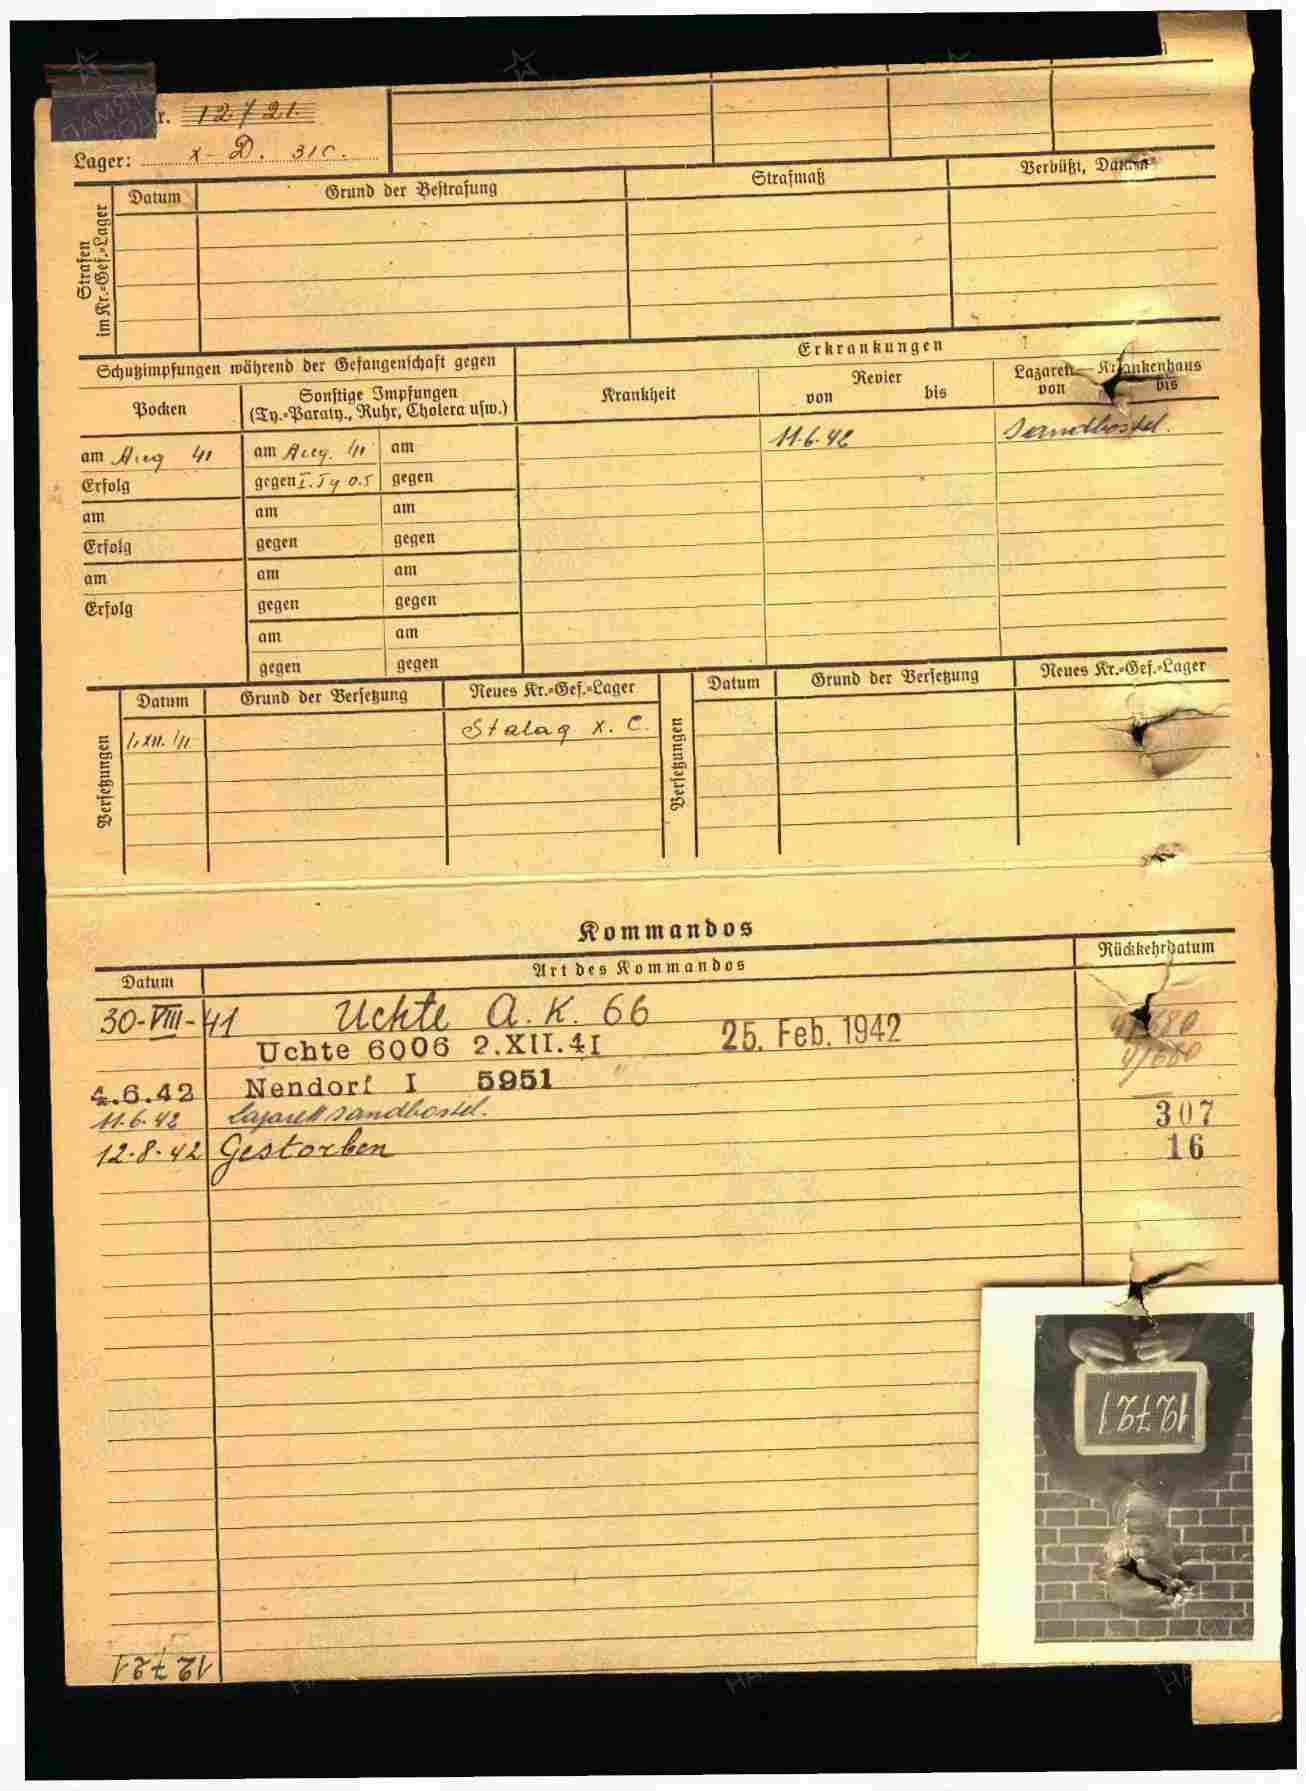 r. 12721.
Lager: X-D. 310.
Strafen
im Kr.=Gef.=Lager
Datum Grund der Bestrafung Strafmaß Verbüßt, Datum
Schutzimpfungen während der Gefangenschaft gegen Erkrankungen
Pocken Sonstige Impfungen
(Ty.=Paraty., Ruhr, Cholera usw.) Krankheit Revier
von bis Lazarett — Krankenhaus
von bis
am Aug 41 am Aug. 41 am 11.6.42 Sandbostel.
Erfolg gegen I. Ty 0.5 gegen
am am am
Erfolg gegen gegen
am am am
Erfolg gegen gegen
am am
gegen gegen
Versetzungen Datum Grund der Versetzung Neues Kr.=Gef.=Lager Versetzungen Datum Grund der Versetzung Neues Kr.=Gef.=Lager
Stalag X. C.
Kommandos
Datum Art des Kommandos Rückkehrdatum
30-VIII-41 Uchte A. K. 66
Uchte 6006 2.XII.41 25. Feb. 1942
4.6.42 Nendorf I 5951
11.6.42 Lazarett Sandbostel. 307
12.8.42 Gestorben 16
12721
12721